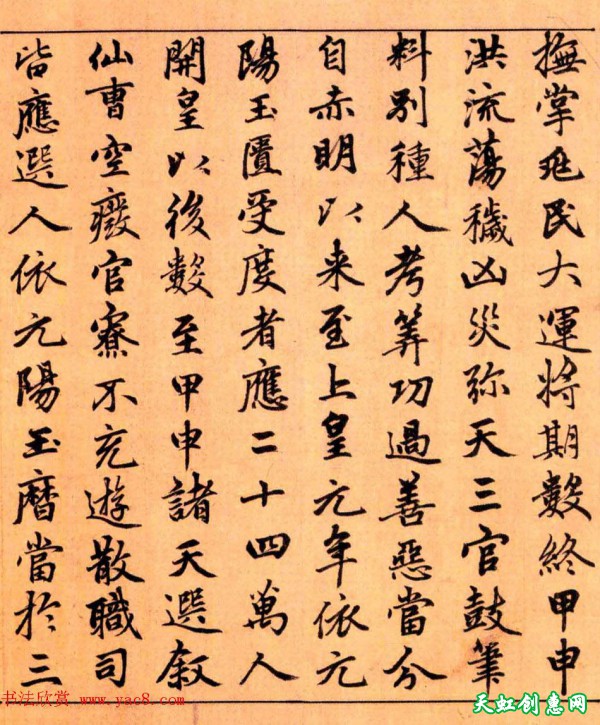 撫掌兆民大運將期數終甲申
洪流蕩穢凶災弥天三官鼓筆
料別種人考筭功過善惡當分
自赤明以来至上皇元年依元
陽玉匱受度者應二十四萬人
開皇以後數至甲申諸天選叙
仙曹空廢官寮不充遊散職司
皆應選人依元陽玉曆當於三
书法欣赏 www.yac8.com
天虹创意网